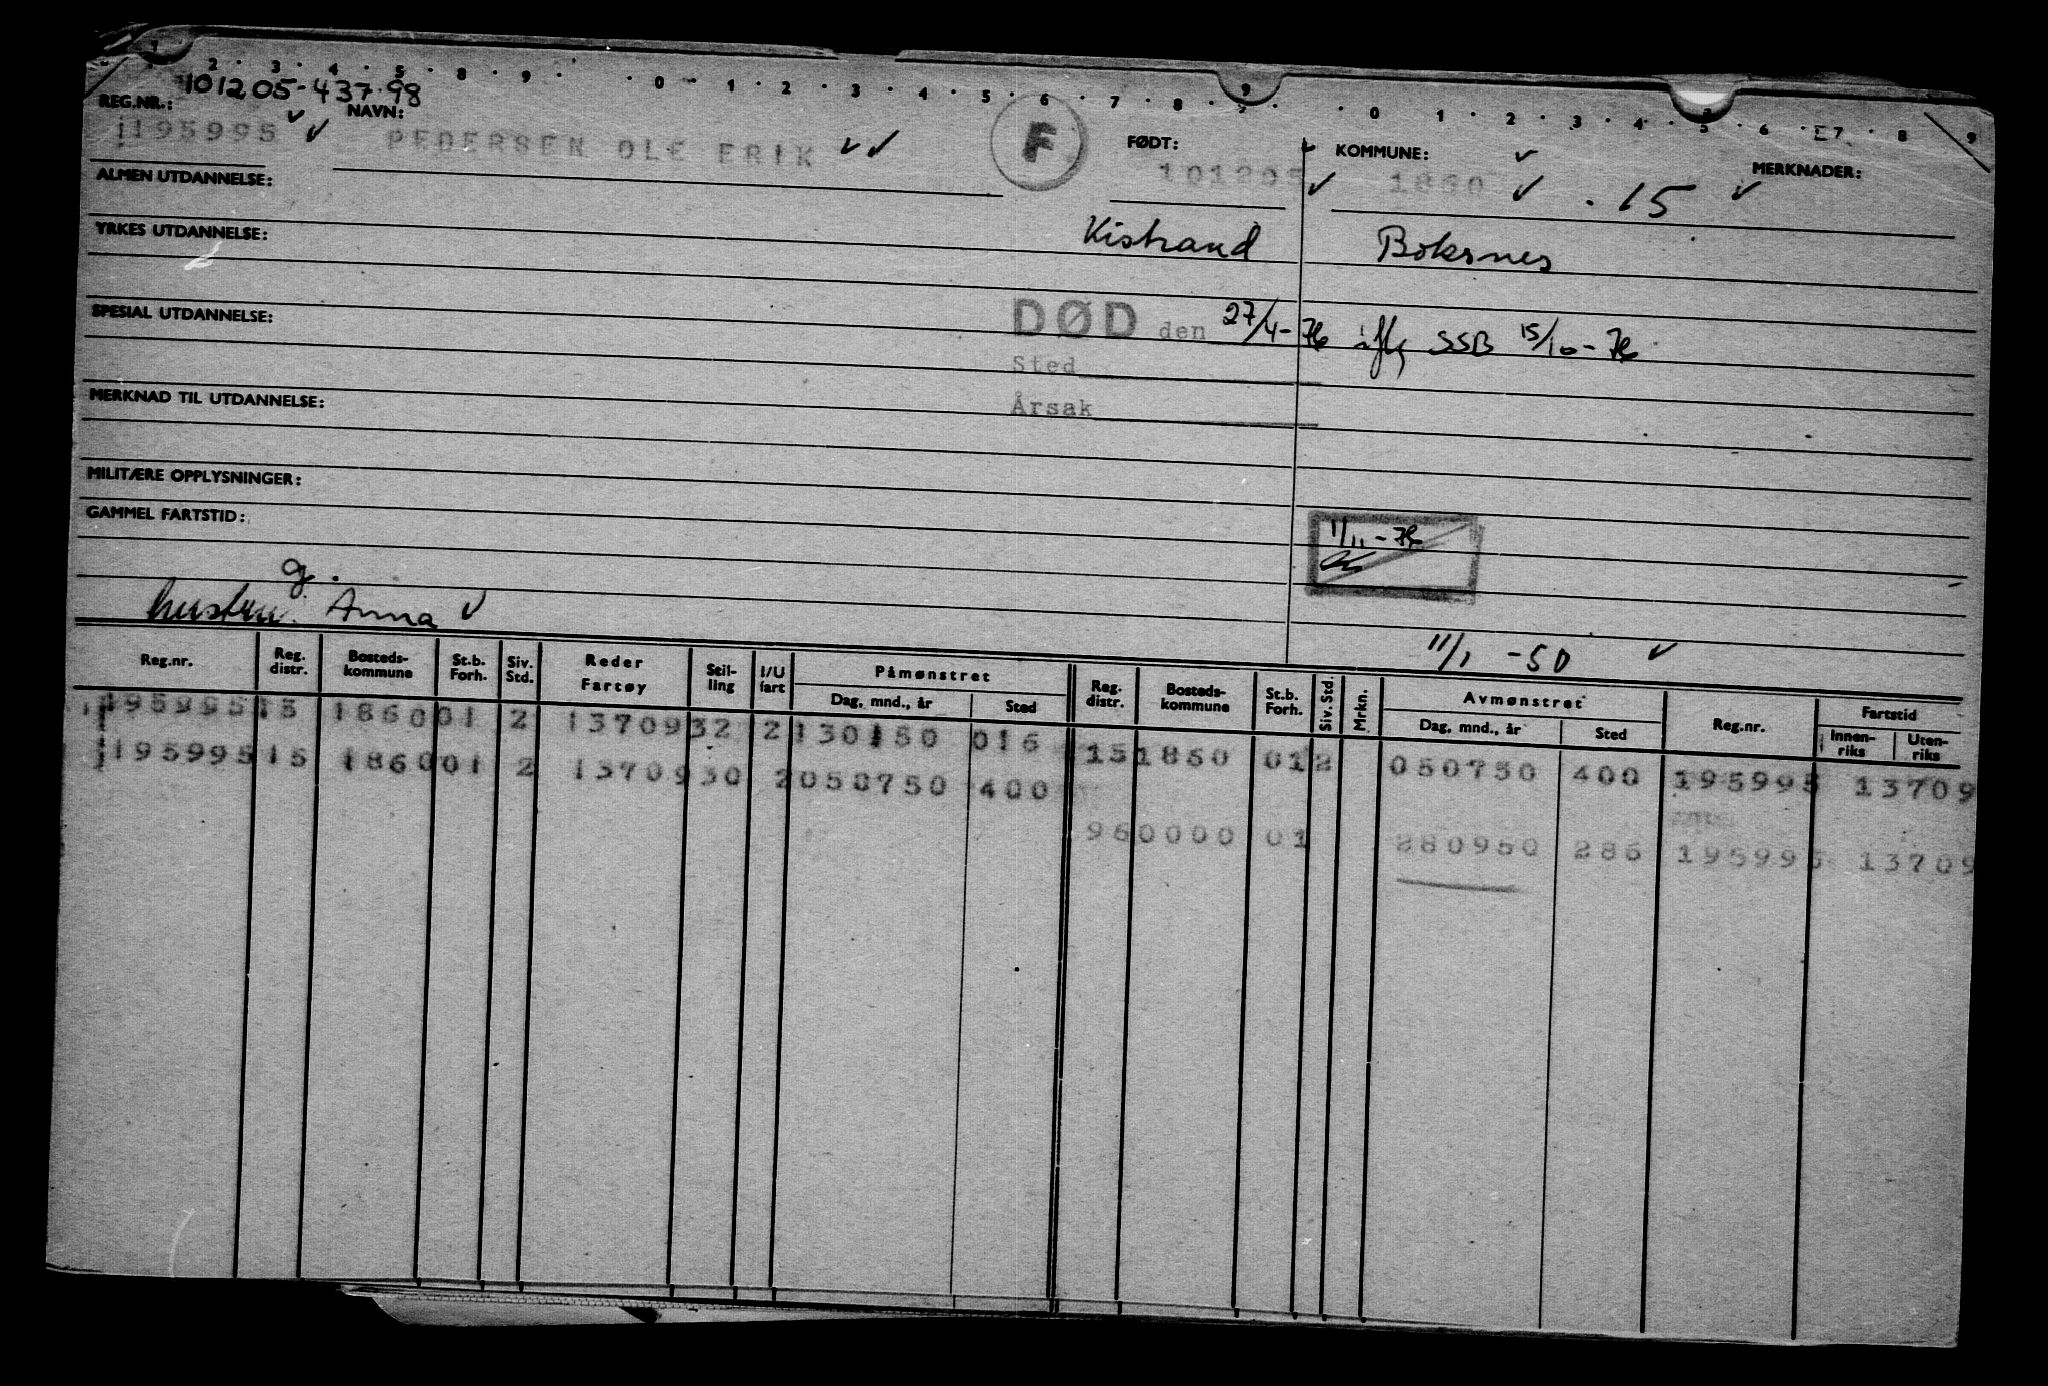 1 2 3 4 5 8 9 0 1 2 3 4 5 6 7 8 9 0 1 2 3 4 5 6 7 8 9
101205-437.98
REG.NR.: NAVN: FØDT: KOMMUNE: MERKNADER:
195995 PEDERSEN OLE ERIK F 101205 1860 . 15
ALMEN UTDANNELSE:
Kistrand Boksnes
YRKES UTDANNELSE:
DØD den 27/4-76 iflg SSB 15/10-76
SPESIAL UTDANNELSE:
Sted
Årsak
MERKNAD TIL UTDANNELSE:
MILITÆRE OPPLYSNINGER:
GAMMEL FARTSTID:
11/11-76
g.
hustru. Anna
11/1 - 50
Reg.nr. Reg. distr. Bosteds-kommune St.b. Forh. Siv. Std. Reder Fartøy Stil-ling I/U fart Påmønstret Dag, mnd., år Sted Reg. distr. Bosteds-kommune St.b. Forh. Siv. Std. Mrkn. Avmønstret Dag, mnd., år Sted Reg.nr. Fartstid Innen-riks Uten-riks
195995 15 1860 01 2 13709 32 2 130150 016 15 1860 01 2 050750 400 195995 13709
195995 15 1860 01 2 13709 30 2 050750 400 96 0000 01 280950 286 195995 13709